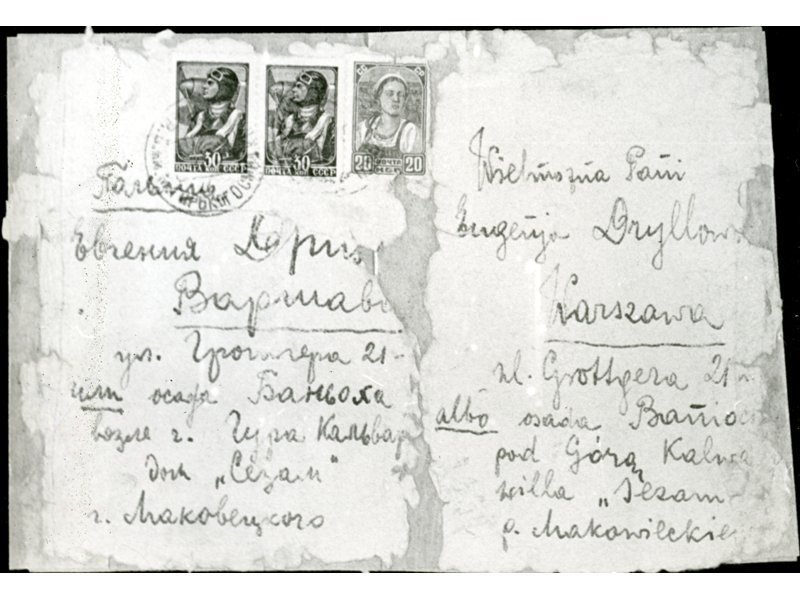 30
ПОЧТА СССР
30
ПОЧТА СССР
20 ПОЧТА 20
Евгения
Варшава
ул. Гроттгера 21
или осада Баньоха
возле г. Гура Кальвар
дом „Сезам"
г. Маковецкого
Wielmożna Pani
Eugenja Dryllow
Warszawa
ul. Grottgera 21
albo osada Banioc
pod Górą Kalwa
willa „Sezam
p. Makowieckie